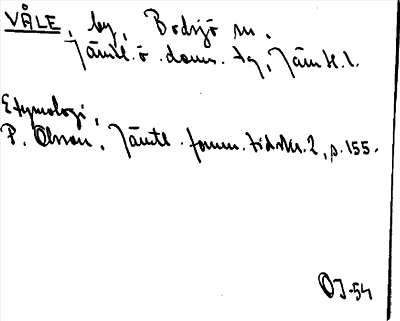 VÅLE, by, Bodsjö sn.
Jämtl. ö. doms. tg, Jämtl. l.
Etymologi,
P. Olsson, Jämtl. fornm. tidskr. 2, p. 155.
OJ-54